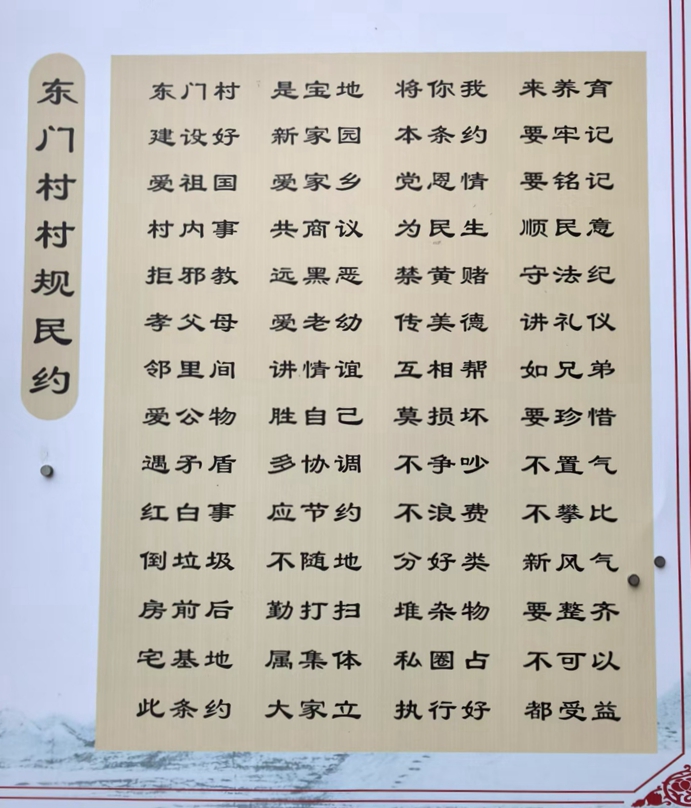 东门村村规民约
东门村 是宝地 将你我 来养育
建设好 新家园 本条约 要牢记
爱祖国 爱家乡 党恩情 要铭记
村内事 共商议 为民生 顺民意
拒邪教 远黑恶 禁黄赌 守法纪
孝父母 爱老幼 传美德 讲礼仪
邻里间 讲情谊 互相帮 如兄弟
爱公物 胜自己 莫损坏 要珍惜
遇矛盾 多协调 不争吵 不置气
红白事 应节约 不浪费 不攀比
倒垃圾 不随地 分好类 新风气
房前后 勤打扫 堆杂物 要整齐
宅基地 属集体 私圈占 不可以
此条约 大家立 执行好 都受益